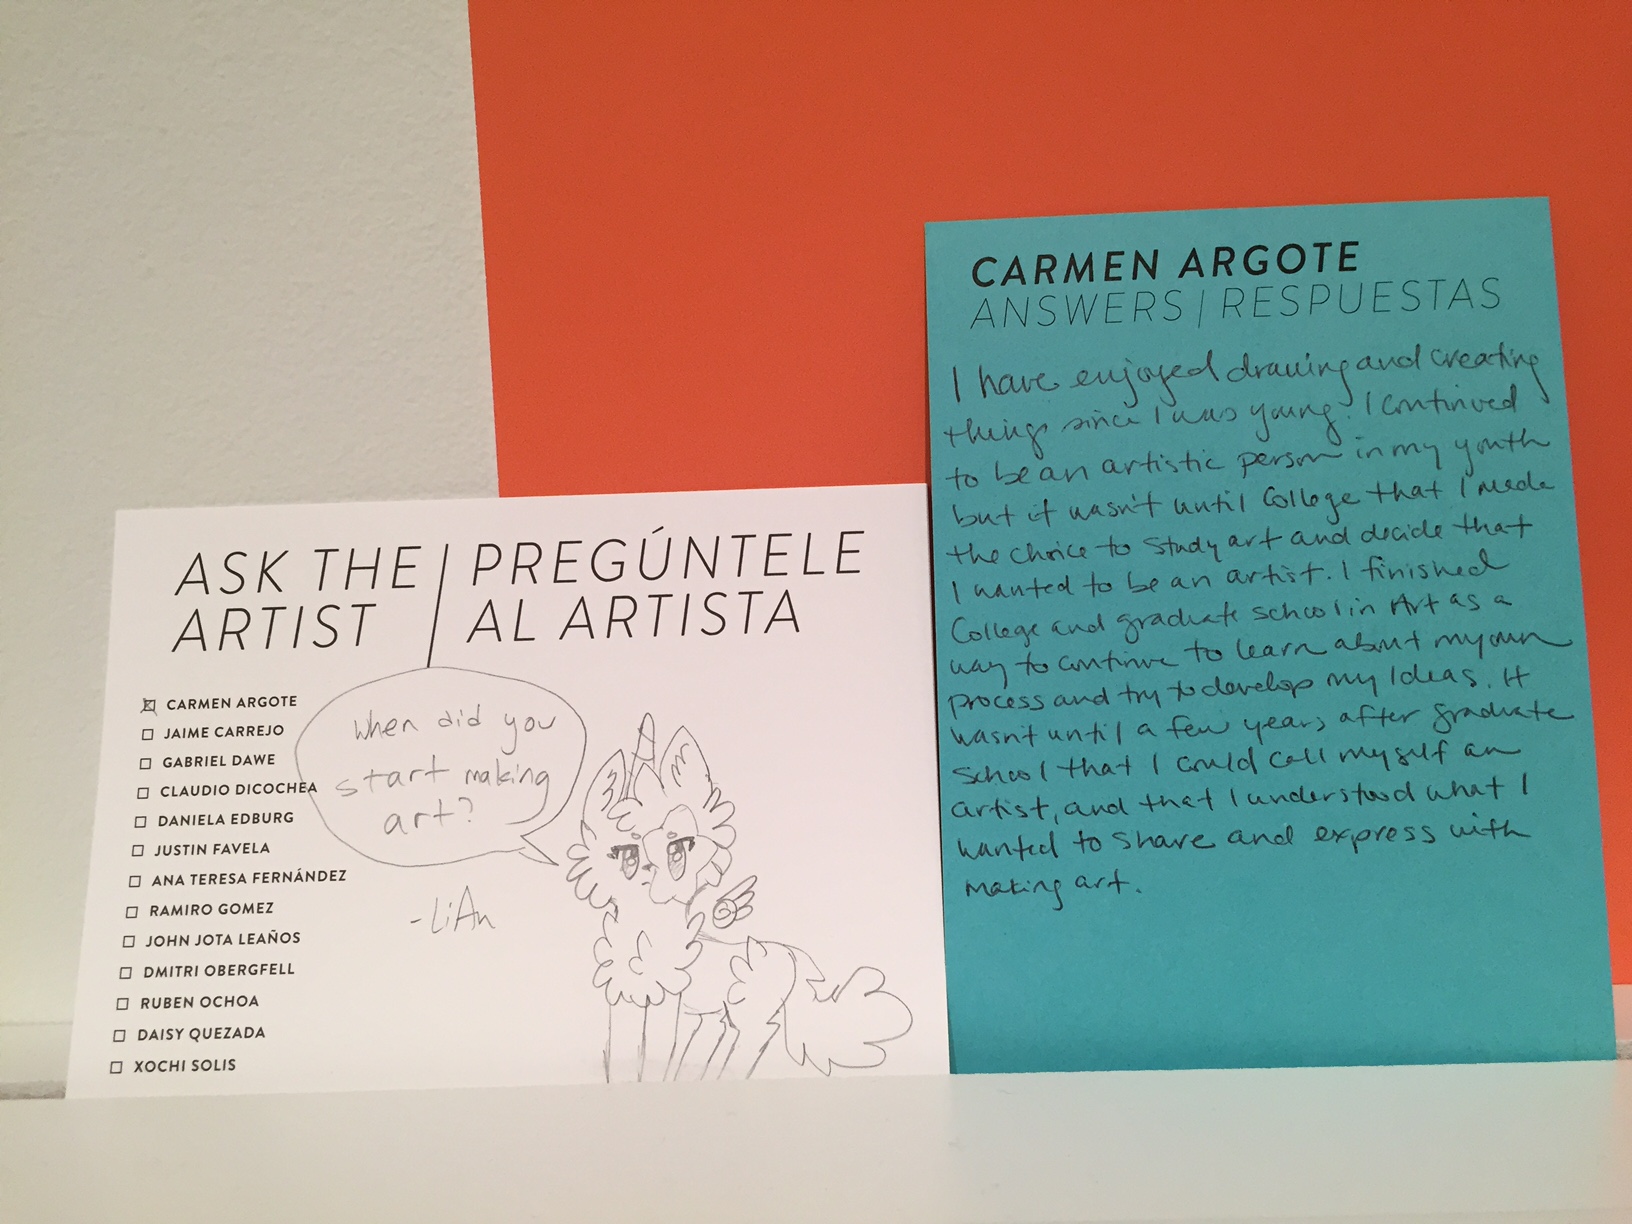 ASK THE
ARTIST
PREGÚNTELE
AL ARTISTA
CARMEN ARGOTE
JAIME CARREJO
GABRIEL DAWE
CLAUDIO DICOCHEA
DANIELA EDBURG
JUSTIN FAVELA
ANA TERESA FERNÁNDEZ
RAMIRO GOMEZ
JOHN JOTA LEAÑOS
DMITRI OBERGFELL
RUBEN OCHOA
DAISY QUEZADA
XOCHI SOLIS
When did you
start making
art?
-LiAn
CARMEN ARGOTE
ANSWERS | RESPUESTAS
I have enjoyed drawing and creating
things since I was young. I continued
to be an artistic person in my youth
but it wasn't until College that I made
the choice to study art and decide that
I wanted to be an artist. I finished
College and graduate school in Art as a
way to continue to learn about my own
process and try to develop my Ideas. It
wasn't until a few years after graduate
school that I could call myself an
artist, and that I understood what I
wanted to share and express with
making art.